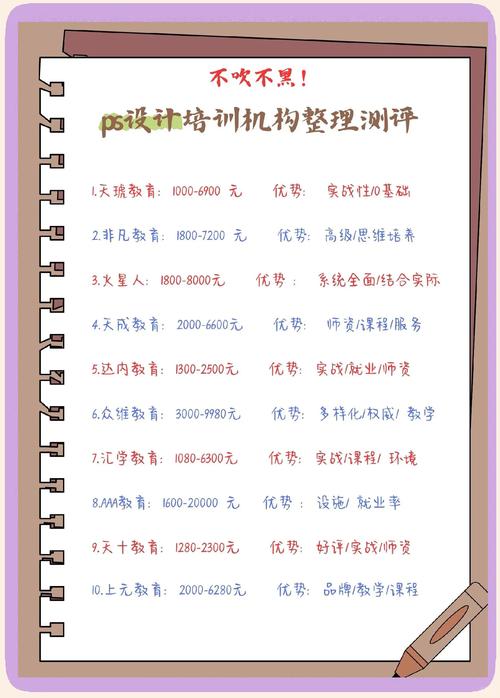 不吹不黑!
ps设计培训机构整理测评
1.天琥教育: 1000-6900 元 优势: 实战性/0基础
2.非凡教育: 1800-7200 元 优势: 高级/思维培养
3.火星人: 1800-8000元 优势: 系统全面/结合实际
4.天成教育: 2000-6600元 优势: 师资/课程/服务
5.达内教育: 1300-2500元 优势: 实战/就业/师资
6.众维教育: 3000-9980元 优势: 多样化/权威/ 教学
7.汇学教育: 1080-6300元 优势: 实战/课程/ 环境
8.AAA教育: 1600-20000 元 优势: 设施/ 就业率
9.天十教育: 1280-2300元 优势: 好评/实战/师资
10.上元教育: 2000-6280元 优势: 品牌/教学/课程